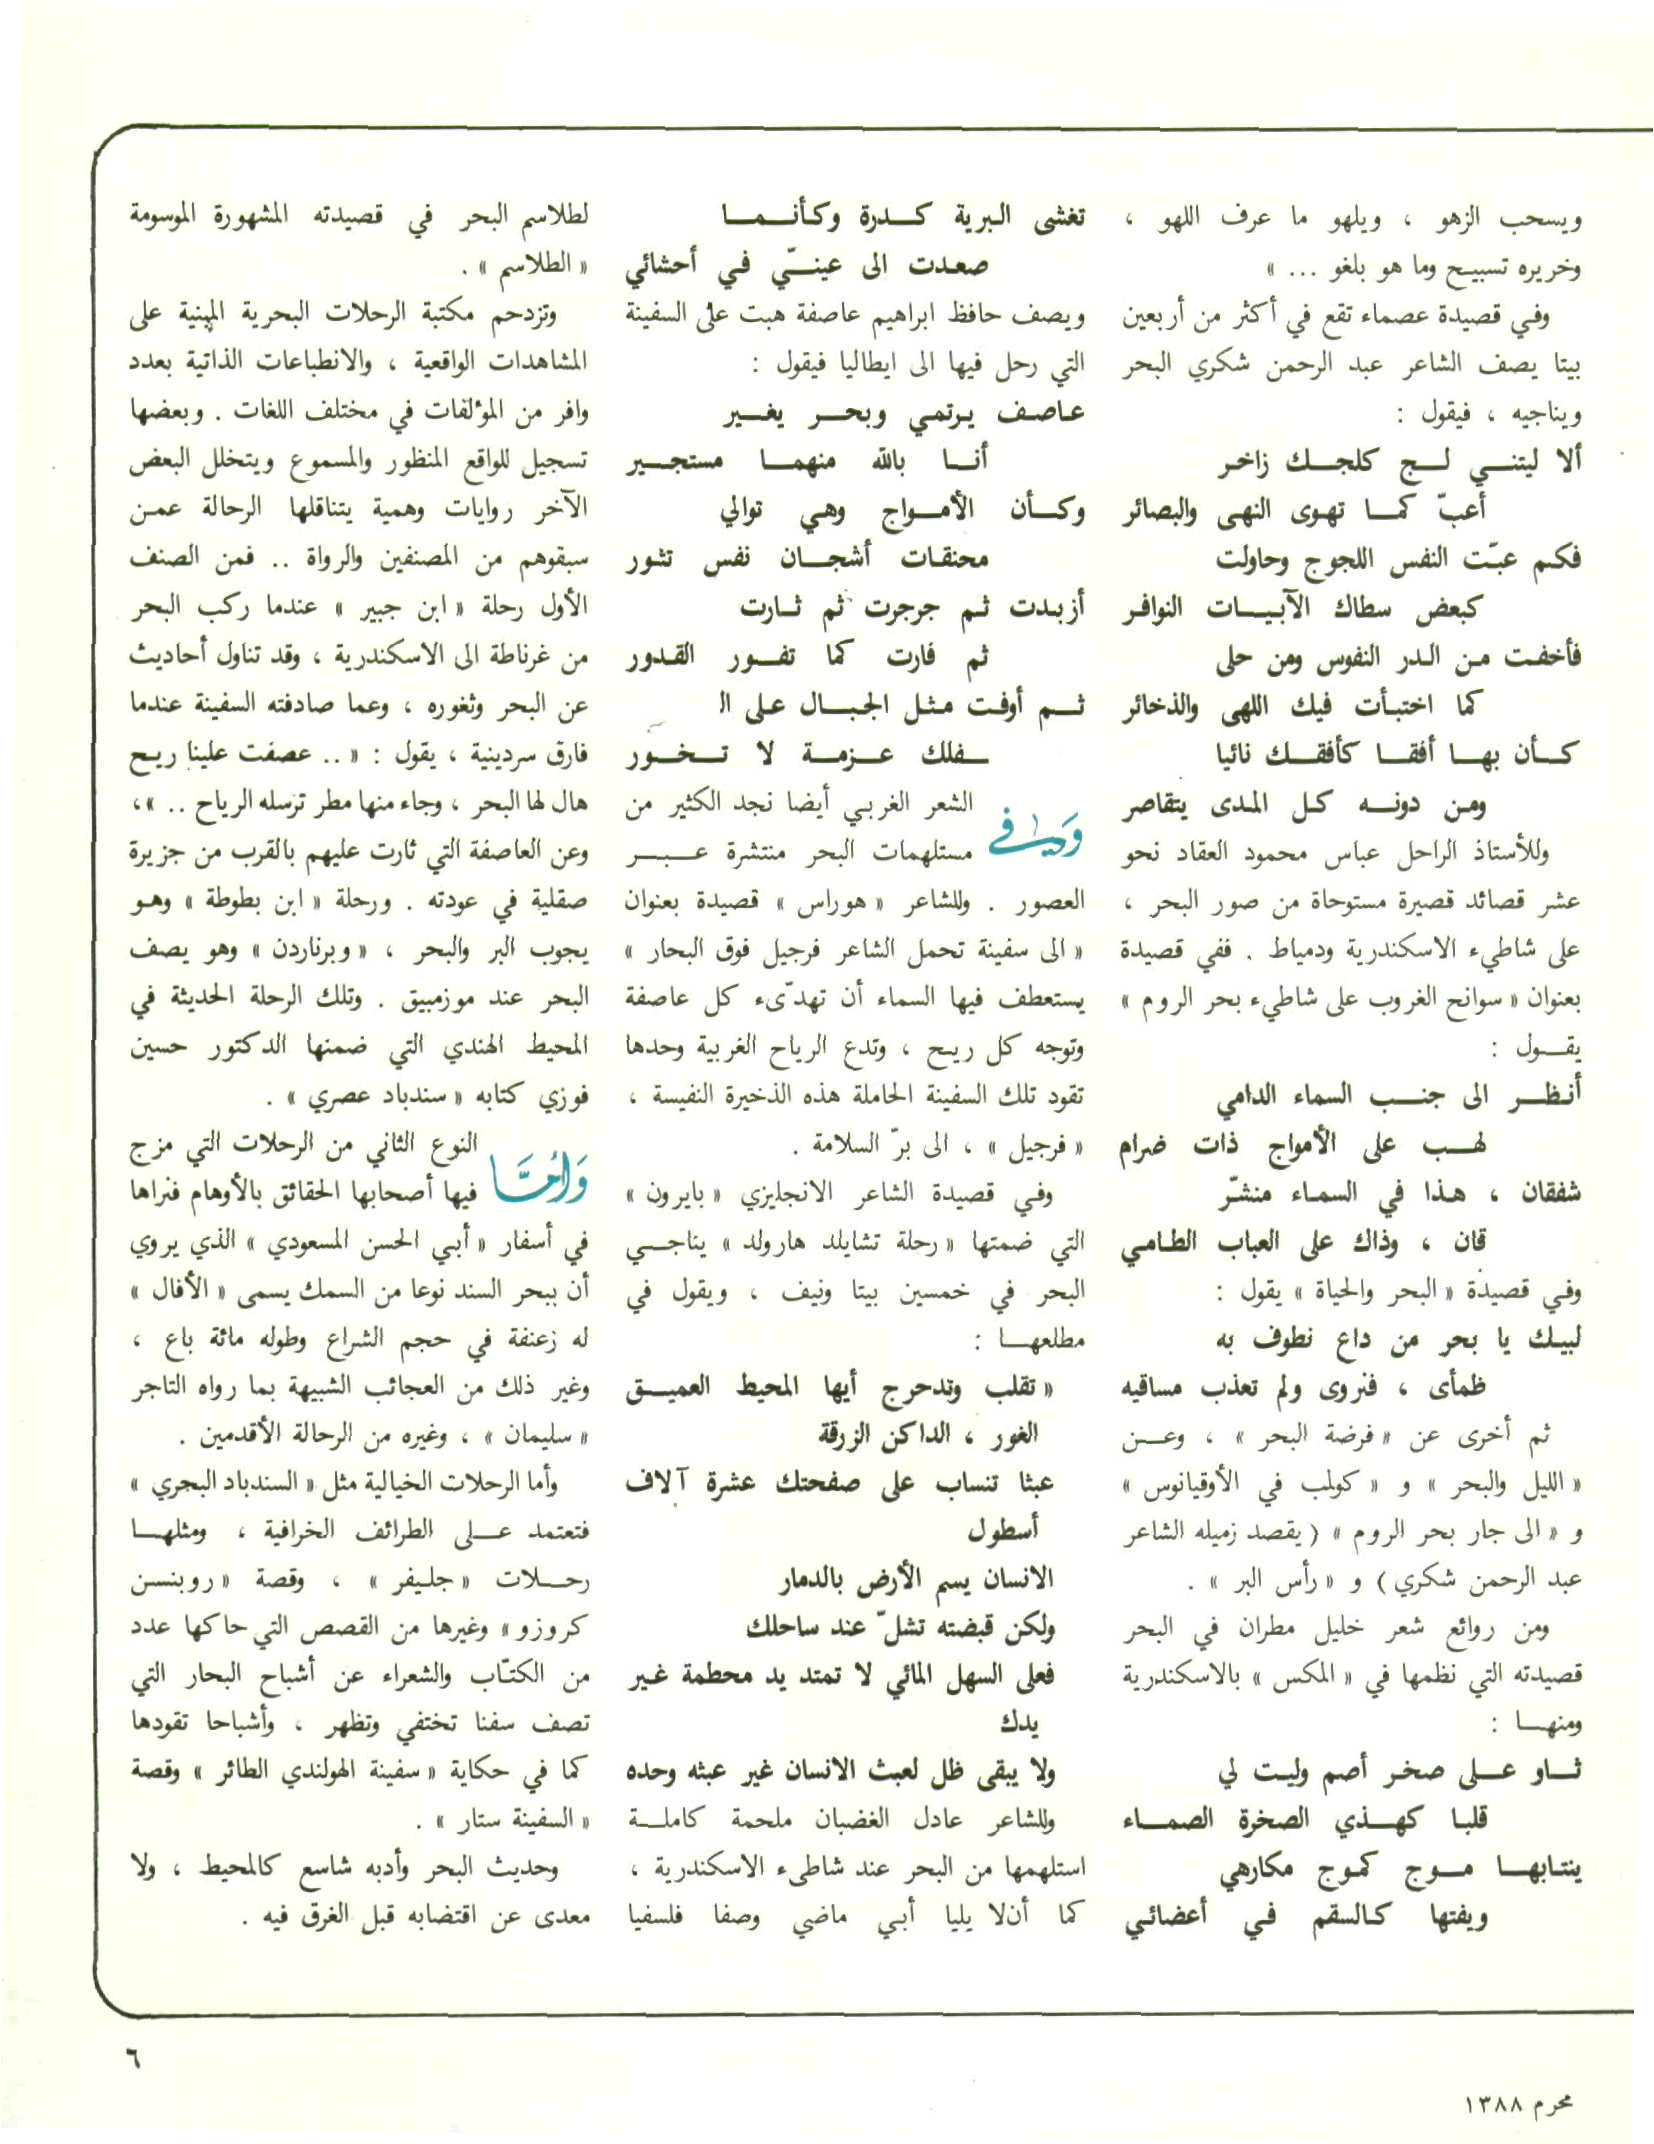 ويسحب الزهو ، ويلهو ما عرف اللهو ،
وخريره تسبيح وما هو بلغو ... »
وفي قصيدة عصماء تقع في أكثر من أربعين
بيتا يصف الشاعر عبد الرحمن شكري البحر
ويناجيه ، فيقول :
ألا ليتني لج كلجك زاخر
أعبّ كما تهوى النهى والبصائر
فكم عبّت النفس اللجوج وحاولت
كبعض سطاك الآبيات النوافر
فأخفت من الدر النفوس ومن حلى
كما اختبأت فيك اللهى والذخائر
كأن بها أفقا كأفقك نائيا
ومن دونه كل المدى يتقاصر
وللأستاذ الراحل عباس محمود العقاد نحو
عشر قصائد قصيرة مستوحاة من صور البحر ،
على شاطيء الاسكندرية ودمياط . ففي قصيدة
بعنوان « سوانح الغروب على شاطيء بحر الروم »
يقول :
أنظر الى جنب السماء الدامي
لهب على الأمواج ذات ضرام
شفقان ، هذا في السماء منشّر
قان ، وذاك على العباب الطامي
وفي قصيدة « البحر والحياة » يقول :
لبيك يا بحر من داع نطوف به
ظمأى ، فنروى ولم تعذب مساقيه
ثم أخرى عن « فرضة البحر » ، وعن
« الليل والبحر » و « كولمب في الأوقيانوس »
و « الى جار بحر الروم » ( يقصد زميله الشاعر
عبد الرحمن شكري ) و « رأس البر » .
ومن روائع شعر خليل مطران في البحر
قصيدته التي نظمها في « المكس » بالاسكندرية
ومنها :
ثاو على صخر أصم وليت لي
قلبا كهذي الصخرة الصماء
ينتابها موج كموج مكارهي
ويفتها كالسقم في أعضائي
تغشى البرية كدرة وكأنما
صعدت الى عينيّ في أحشائي
ويصف حافظ ابراهيم عاصفة هبت على السفينة
التي رحل فيها الى ايطاليا فيقول :
عاصف يرتمي وبحر يغير
أنا بالله منهما مستجير
وكأن الأمواج وهي توالي
محنقات أشجان نفس تثور
أزبدت ثم جرجرت ثم ثارت
ثم فارت كما تفور القدور
ثم أوفت مثل الجبال على ال
ـفلك عزمة لا تخور
وفي الشعر الغربي أيضا نجد الكثير من
مستلهمات البحر منتشرة عبر
العصور . وللشاعر « هوراس » قصيدة بعنوان
« الى سفينة تحمل الشاعر فرجيل فوق البحار »
يستعطف فيها السماء أن تهدّىء كل عاصفة
وتوجه كل ريح ، وتدع الرياح الغربية وحدها
تقود تلك السفينة الحاملة هذه الذخيرة النفيسة ،
« فرجيل » ، الى برّ السلامة .
وفي قصيدة الشاعر الانجليزي « بايرون »
التي ضمنتها « رحلة تشايلد هارولد » يناجي
البحر في خمسين بيتا ونيف ، ويقول في
مطلعها :
« تقلب وتدحرج أيها المحيط العميق
الغور ، الداكن الزرقة
عبثا تنساب على صفحتك عشرة آلاف
أسطول
الانسان يسم الأرض بالدمار
ولكن قبضته تشلّ عند ساحلك
فعلى السهل المائي لا تمتد يد محطمة غير
يدك
ولا يبقى ظل لعبث الانسان غير عبثه وحده
وللشاعر عادل الغضبان ملحمة كاملة
استلهمها من البحر عند شاطىء الاسكندرية ،
كما أن لا يليا أبي ماضي وصفا فلسفيا
لطلاسم البحر في قصيدته المشهورة الموسومة
« الطلاسم » .
وتزدحم مكتبة الرحلات البحرية المبنية على
المشاهدات الواقعية ، والانطباعات الذاتية بعدد
وافر من المؤلفات في مختلف اللغات . وبعضها
تسجيل للواقع المنظور والمسموع ويتخلل البعض
الآخر روايات وهمية يتناقلها الرحالة عمن
سبقوهم من المصنفين والرواة .. فمن الصنف
الأول رحلة « ابن جبير » عندما ركب البحر
من غرناطة الى الاسكندرية ، وقد تناول أحاديث
عن البحر وثغوره ، وعما صادفته السفينة عندما
فارق سردينية ، يقول : « .. عصفت علينا ريح
هال لها البحر ، وجاء منها مطر ترسله الرياح .. » ،
وعن العاصفة التي ثارت عليهم بالقرب من جزيرة
صقلية في عودته . ورحلة « ابن بطوطة » وهو
يجوب البر والبحر ، « وبرناردن » وهو يصف
البحر عند موزمبيق . وتلك الرحلة الحديثة في
المحيط الهندي التي ضمنها الدكتور حسين
فوزي كتابه « سندباد عصري » .
وأمّا النوع الثاني من الرحلات التي مزج
فيها أصحابها الحقائق بالأوهام فنراها
في أسفار « أبي الحسن المسعودي » الذي يروي
أن ببحر السند نوعا من السمك يسمى « الأفال »
له زعنفة في حجم الشراع وطوله مائة باع ،
وغير ذلك من العجائب الشبيهة بما رواه التاجر
« سليمان » ، وغيره من الرحالة الأقدمين .
وأما الرحلات الخيالية مثل « السندباد البحري »
فتعتمد على الطرائف الخرافية ، ومثلها
رحلات « جليفر » ، وقصة « روبنسن
كروزو » وغيرها من القصص التي حاكها عدد
من الكتّاب والشعراء عن أشباح البحار التي
تصف سفنا تختفي وتظهر ، وأشباحا تقودها
كما في حكاية « سفينة الهولندي الطائر » وقصة
« السفينة ستار » .
وحديث البحر وأدبه شاسع كالمحيط ، ولا
معدى عن اقتضابه قبل الغرق فيه .
٦
محرم ١٣٨٨